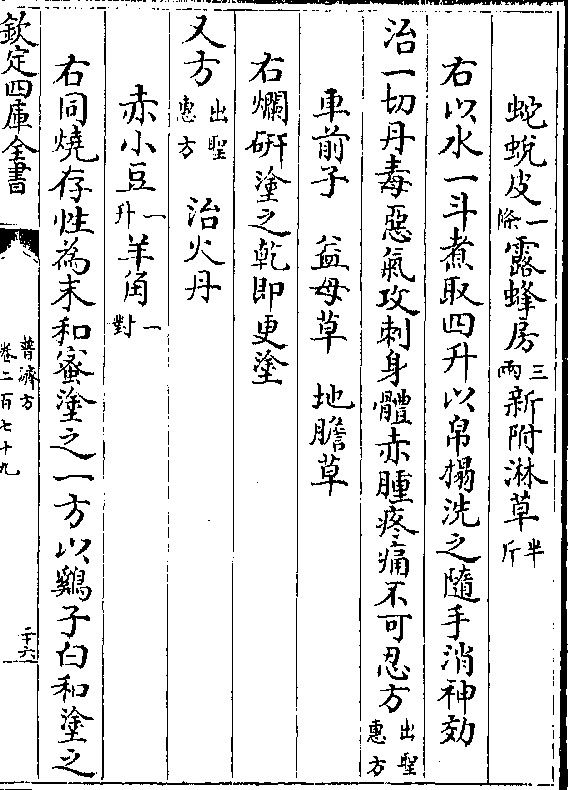 蛇蛻皮一條露蜂房三兩新附淋草半斤
右以水一斗煮取四升以帛搨洗之隨手消神効
治一切丹毒惡氣攻刺身體赤腫疼痛不可忍方出聖惠方
車前子　益母草　地膽草
右爛研塗之乾即更塗
又方出聖惠方　治火丹
赤小豆一升羊角一對
右同燒存性為末和蜜塗之一方以鷄子白和塗之
欽定四庫全書
普濟方
卷二百七十九
二十六